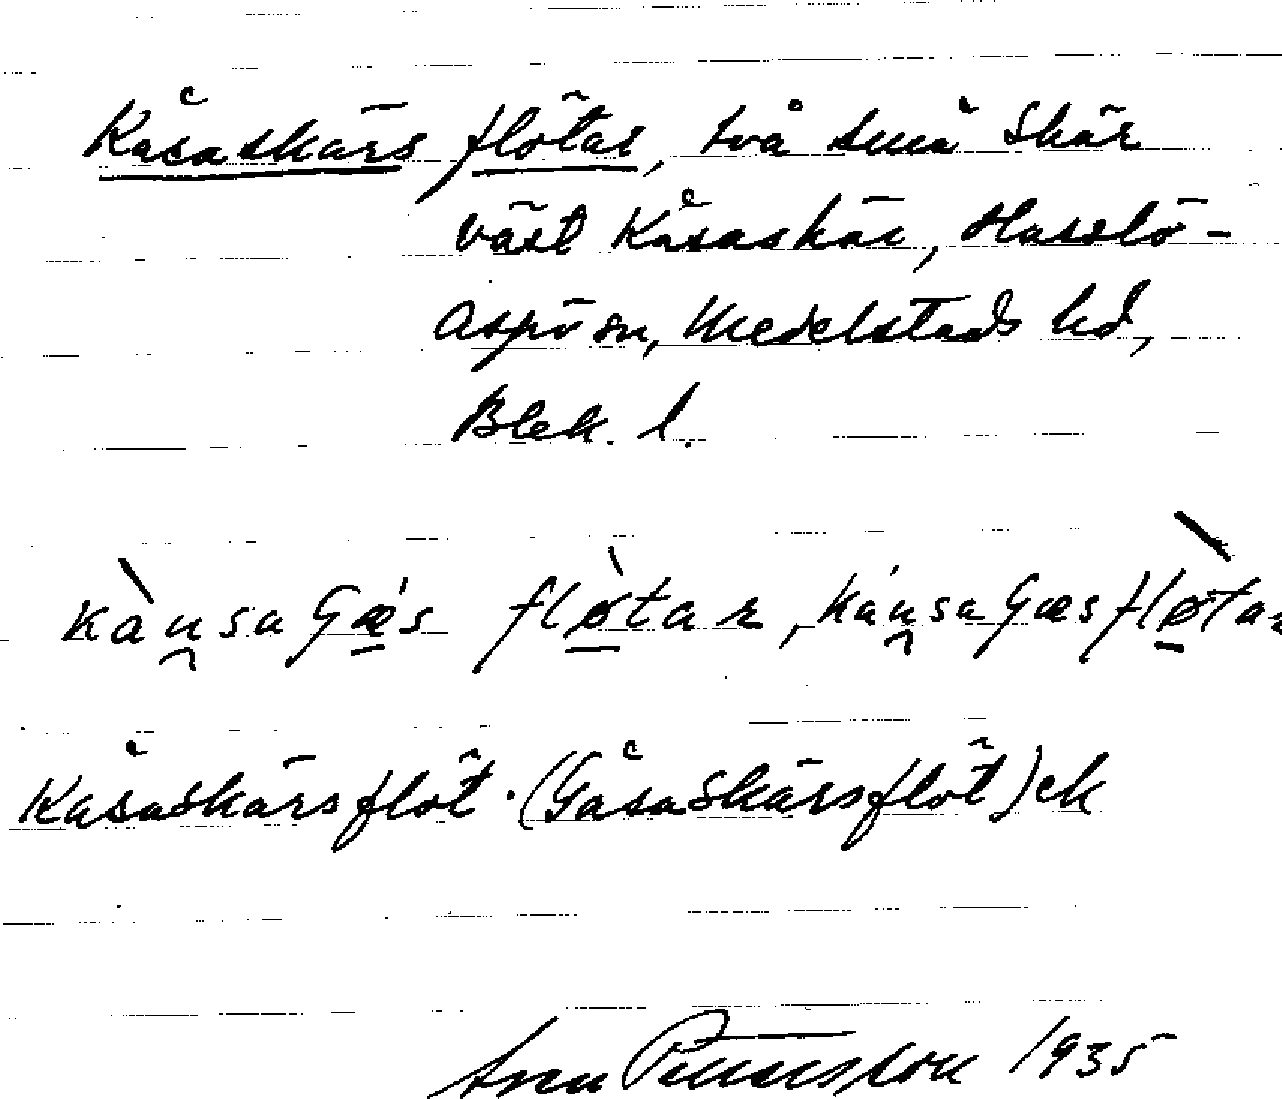 Kåsaskärs flötar, två små skär
väst Kåsaskär, Hasslö-
Aspö sn, Medelstads hd,
Blek. l.
kàu̯saGǽs flø̀tar, káu̯saGæsflø̀tar
Kåsaskärsflöt. (Gåsaskärsflöt) ek
Petersson 1935